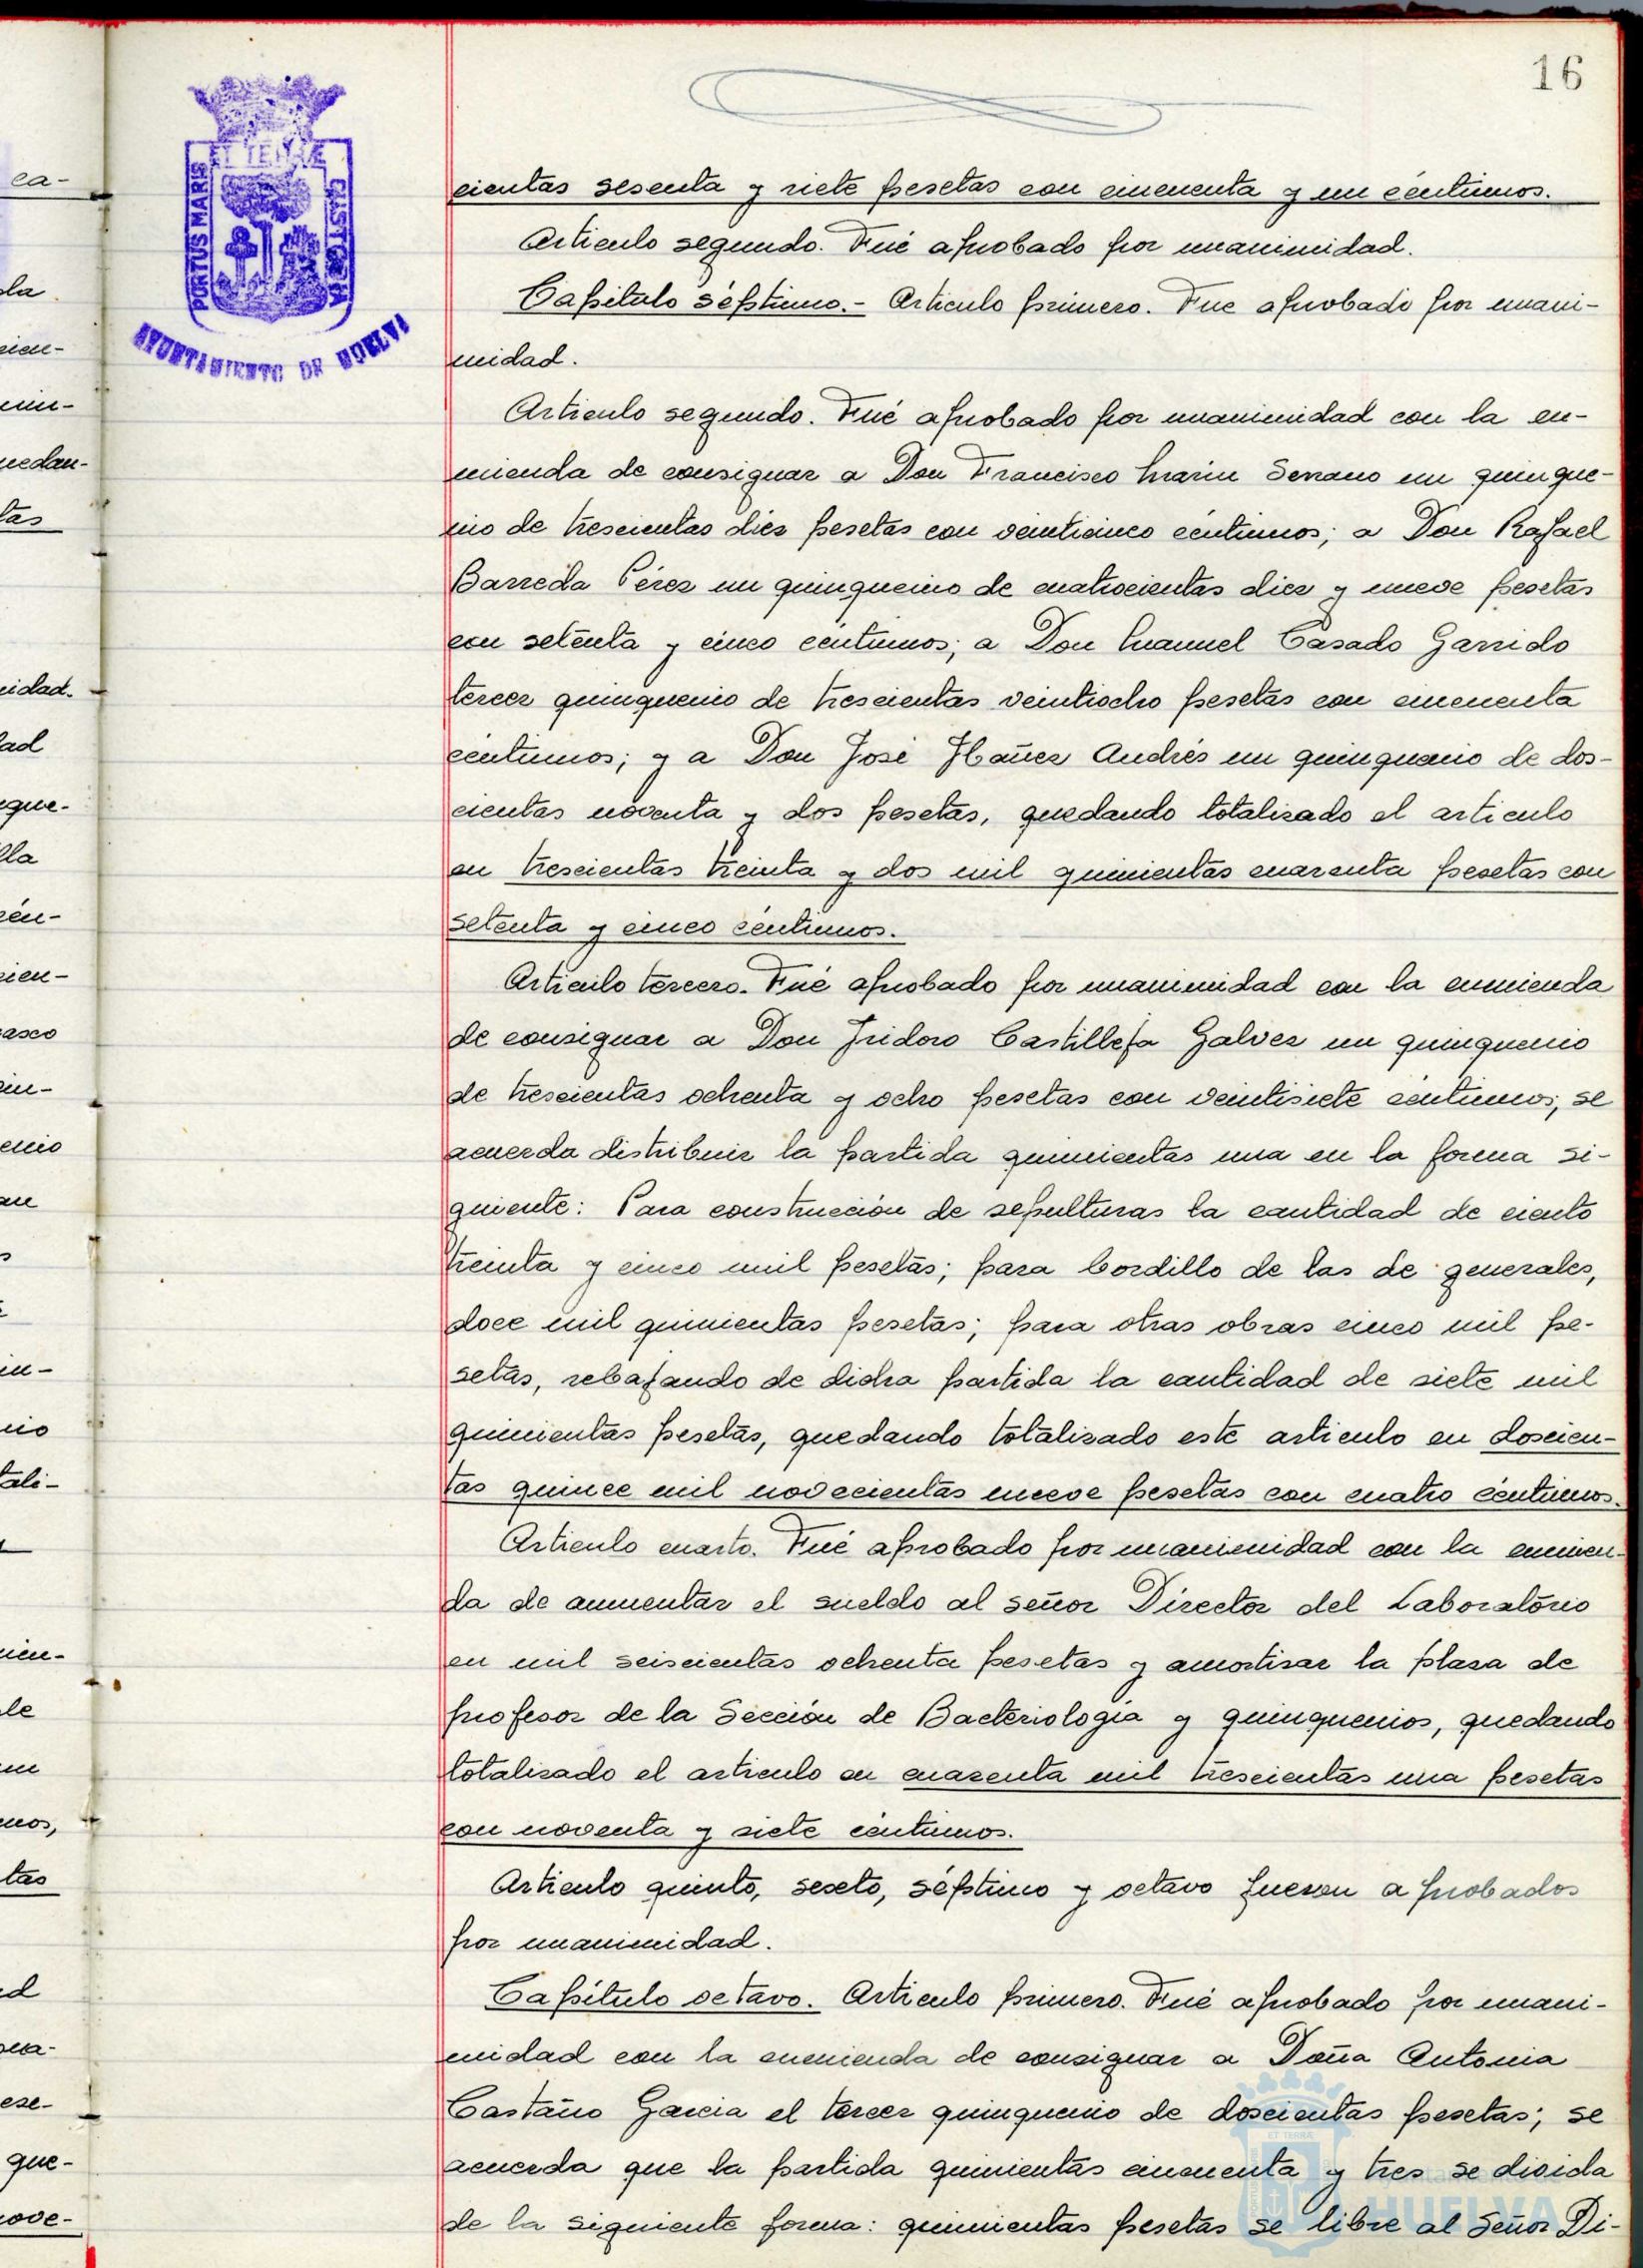 16
ET TERRÆ
PORTUS MARIS
CUSTODIA
AYUNTAMIENTO DE HUELVA
cientas sesenta y siete pesetas con cincuenta y un céntimos.
Articulo segundo. Fué aprobado por unanimidad.
Capitulo séptimo.- Articulo primero. Fue aprobado por unani-
midad.
Articulo segundo. Fué aprobado por unanimidad con la en-
mienda de consignar a Don Francisco Marin Serrano un quinque-
nio de trescientas diez pesetas con veinticinco céntimos; a Don Rafael
Barreda Pérez un quinquenio de cuatrocientas diez y nueve pesetas
con setenta y cinco centimos; a Don Manuel Casado Garrido
tercer quinquenio de trescientas veintiocho pesetas con cincuenta
céntimos; y a Don José Ibañez Andrés un quinquenio de dos-
cientas noventa y dos pesetas, quedando totalizado el articulo
en trescientas treinta y dos mil quinientas cuarenta pesetas con
setenta y cinco céntimos.
Articulo tercero. Fué aprobado por unanimidad con la enmienda
de consignar a Don Isidoro Castilleja Galvez un quinquenio
de trescientas ochenta y ocho pesetas con veintisiete céntimos; se
acuerda distribuir la partida quinientas una en la forma si-
guiente: Para construcción de sepulturas la cantidad de ciento
treinta y cinco mil pesetas; para bordillo de las de generales,
doce mil quinientas pesetas; para otras obras cinco mil pe-
setas, rebajando de dicha partida la cantidad de siete mil
quinientas pesetas, quedando totalizado este articulo en doscien-
tas quince mil novecientas nueve pesetas con cuatro céntimos.
Articulo cuarto. Fué aprobado por unanimidad con la enmien-
da de aumentar el sueldo al señor Director del Laboratorio
en mil seiscientas ochenta pesetas y amortizar la plaza de
profesor de la Sección de Bacteriologia y quinquenios, quedando
totalizado el articulo en cuarenta mil trescientas una pesetas
con noventa y siete céntimos.
Articulo quinto, sexto, séptimo y octavo fueron aprobados
por unanimidad.
Capítulo octavo. Articulo primero. Fué aprobado por unani-
midad con la enmienda de consignar a Doña Antonia
Castaño Garcia el tercer quinquenio de doscientas pesetas; se
acuerda que la partida quinientas cincuenta y tres se divida
de la siguiente forma: quinientas pesetas se libre al Señor Di-
HUELVA